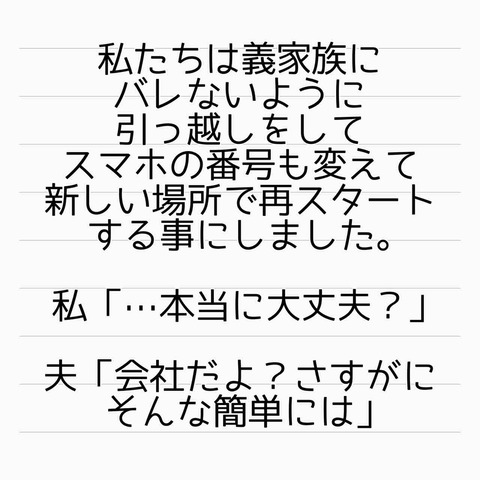 私たちは義家族に
バレないように
引っ越しをして
スマホの番号も変えて
新しい場所で再スタート
する事にしました。
私「…本当に大丈夫？」
夫「会社だよ？さすがに
そんな簡単には」